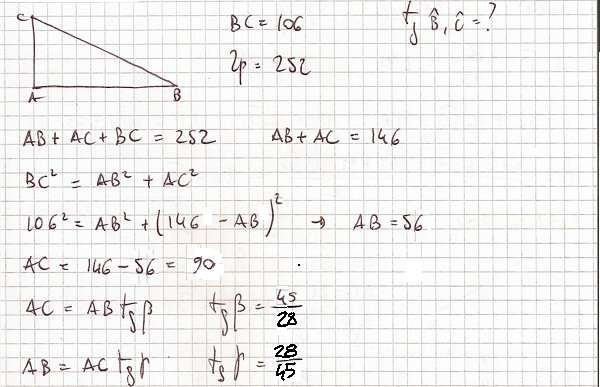 C
BC = 106
tg B̂, Ĉ = ?
2p = 252
A
B
AB + AC + BC = 252 AB + AC = 146
BC² = AB² + AC²
106² = AB² + (146 - AB)² → AB = 56
AC = 146 - 56 = 90
AC = AB tg β tg β = 45/28
AB = AC tg γ tg γ = 28/45